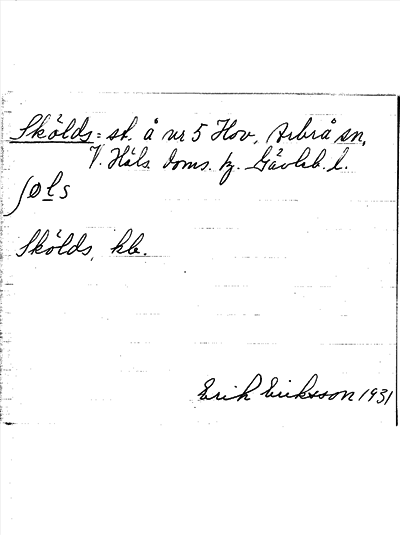 Skölds = st. å nr 5 Hov, Arbrå sn,
V. Häls. doms. Gävleb. l.
ʃøls
Skölds, kb.
Erik Eriksson 1931